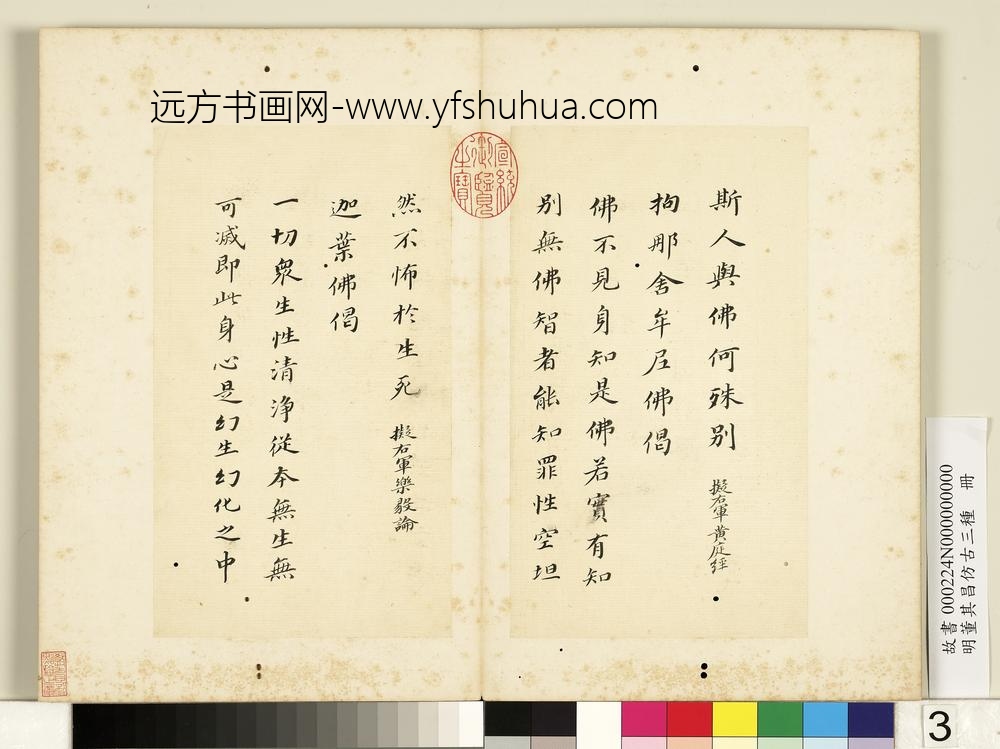 远方书画网-www.yfshuhua.com
宣統御覽之寶
斯人與佛何殊别
擬右軍黄庭經
拘那舍牟尼佛偈
佛不見身知是佛若實有知
别無佛智者能知罪性空坦
然不怖於生死
擬右軍樂毅論
迦葉佛偈
一切衆生性清淨從本無生無
可滅即此身心是幻生幻化之中
故書 000224N000000000
明董其昌仿古三種 冊
3